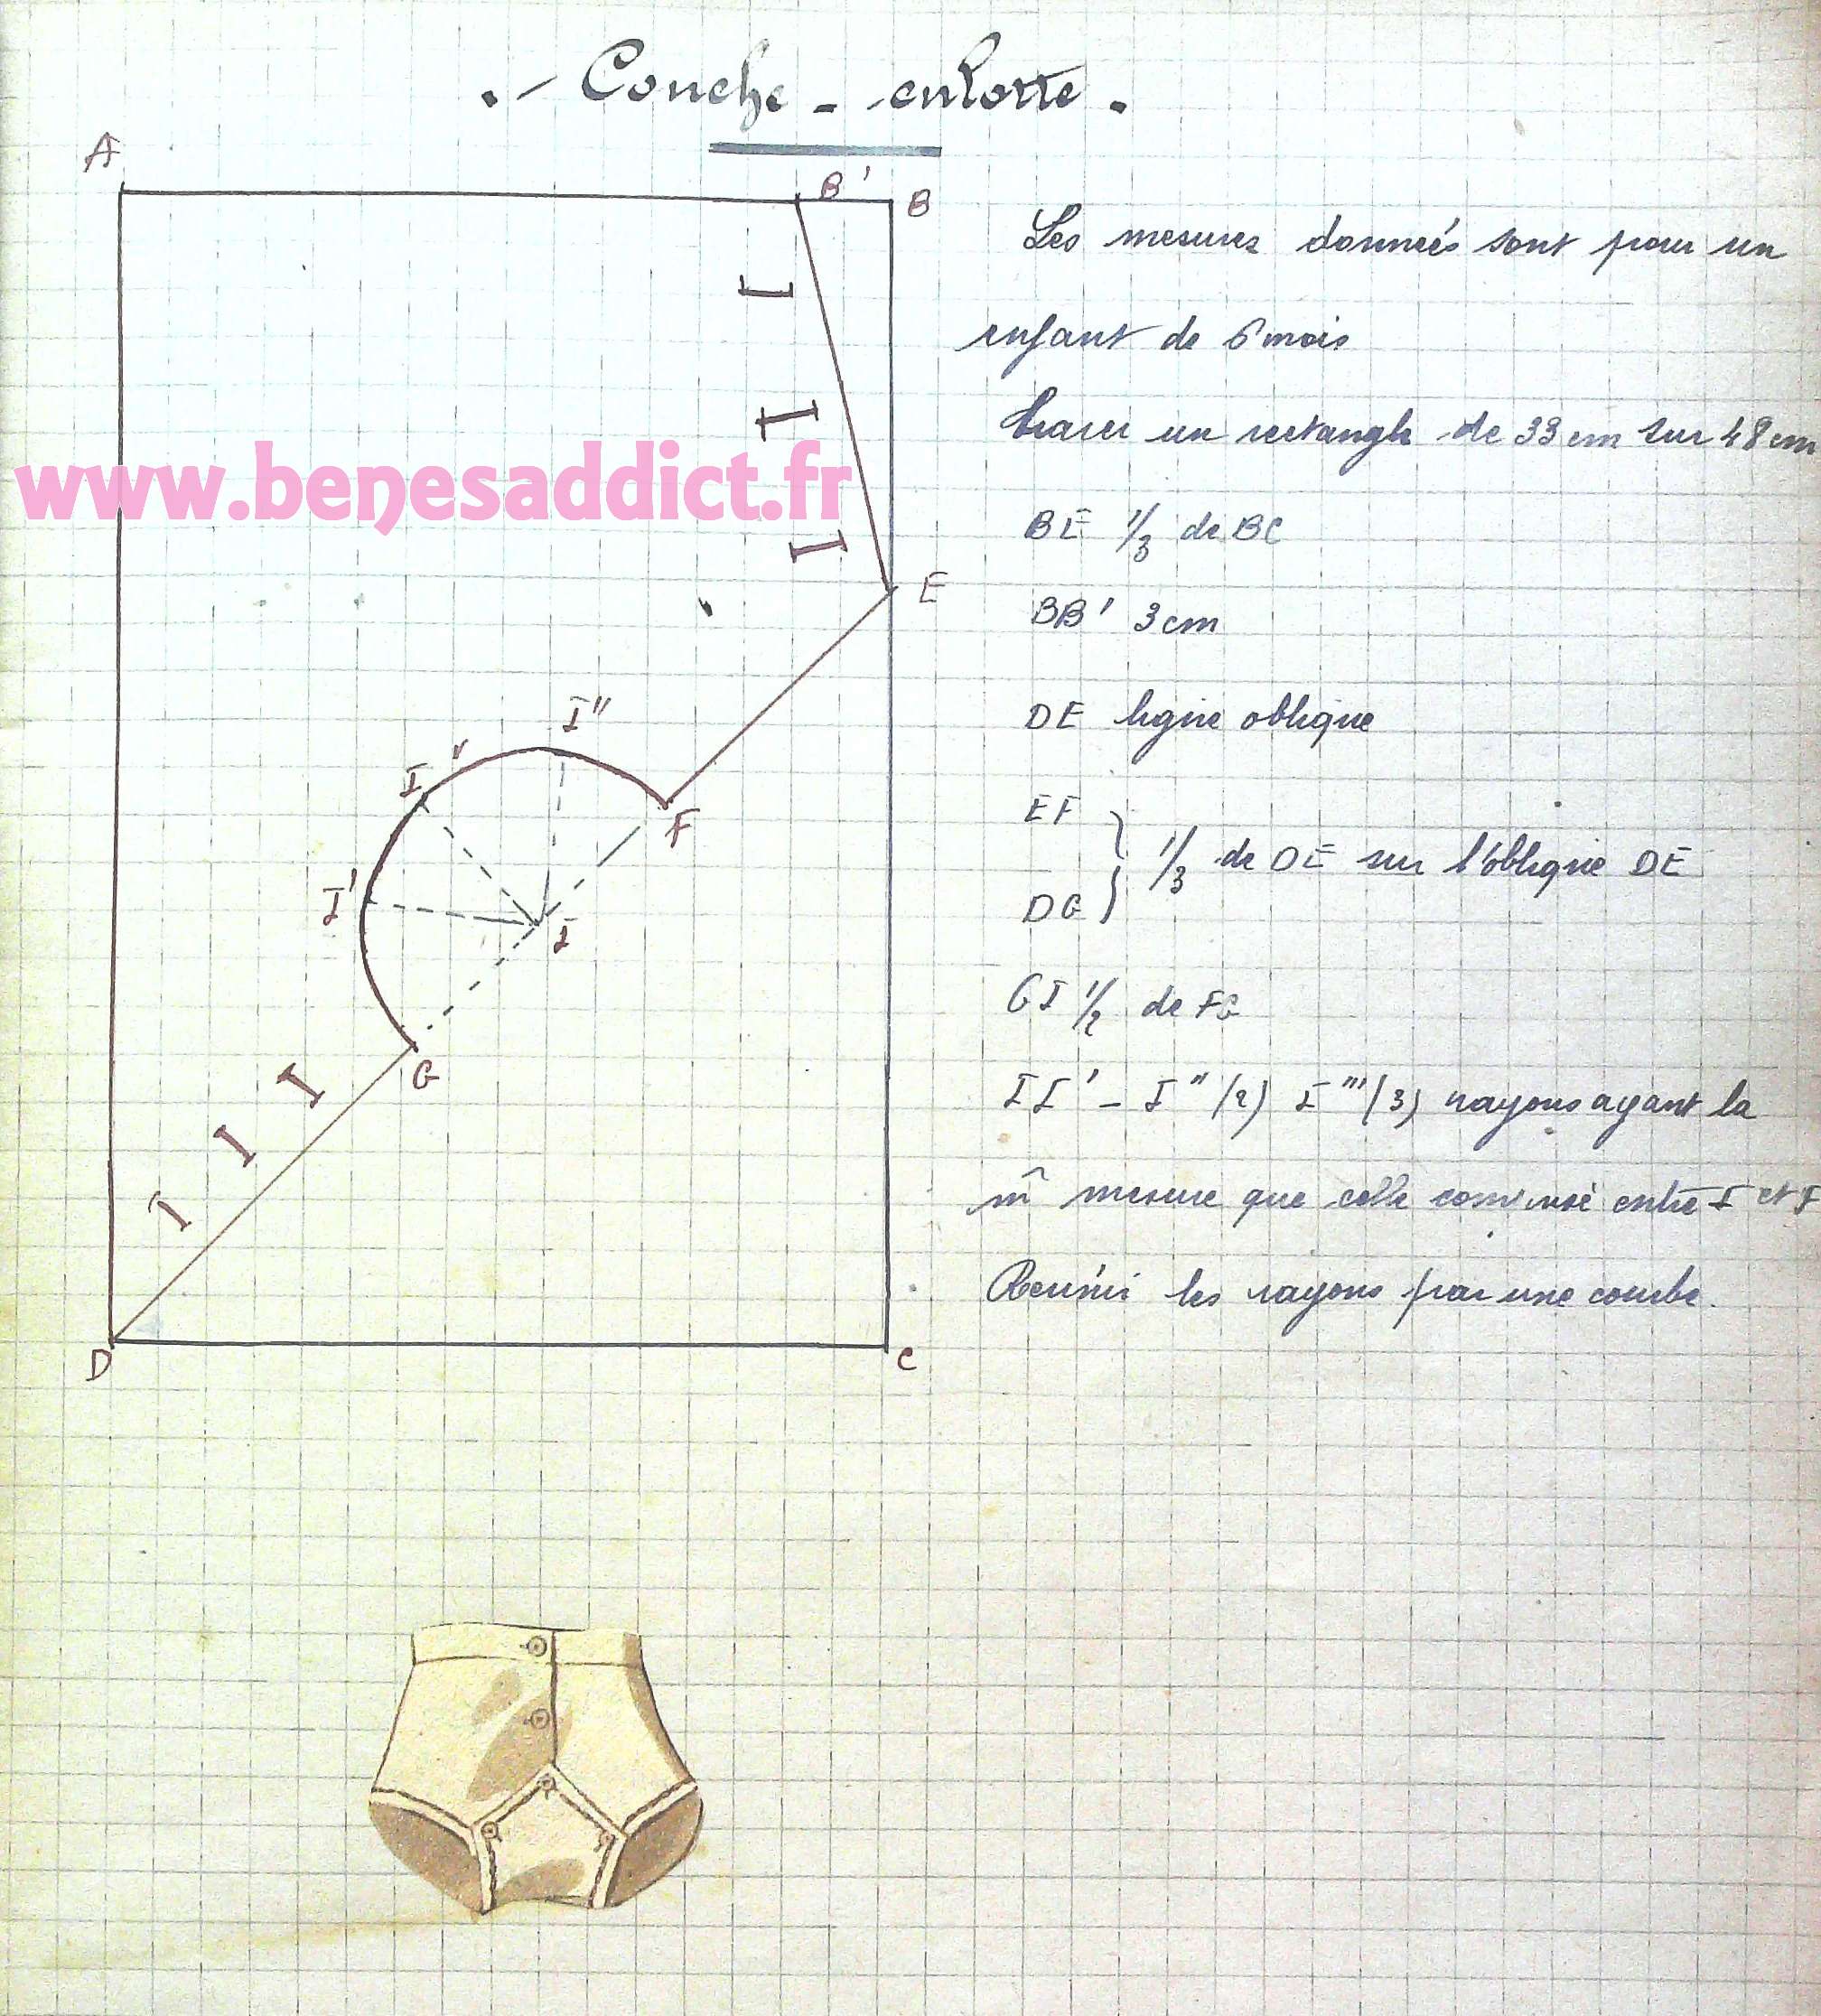 .- Couche - culotte .
A
B'
B
Les mesures données sont pour un
enfant de 6 mois
tracer un rectangle de 33 cm sur 48 cm
www.benesaddict.fr
BE 1/3 de BC
E
BB' 3 cm
I''
DE ligne oblique
I''
EF
F
1/3 de DE sur l'oblique DE
I'
DG
I
GI 1/2 de FG
G
II' - I'' (2) I''' (3) rayons ayant la
m̂ mesure que celle comprise entre I et F
Réunir les rayons par une courbe.
D
C